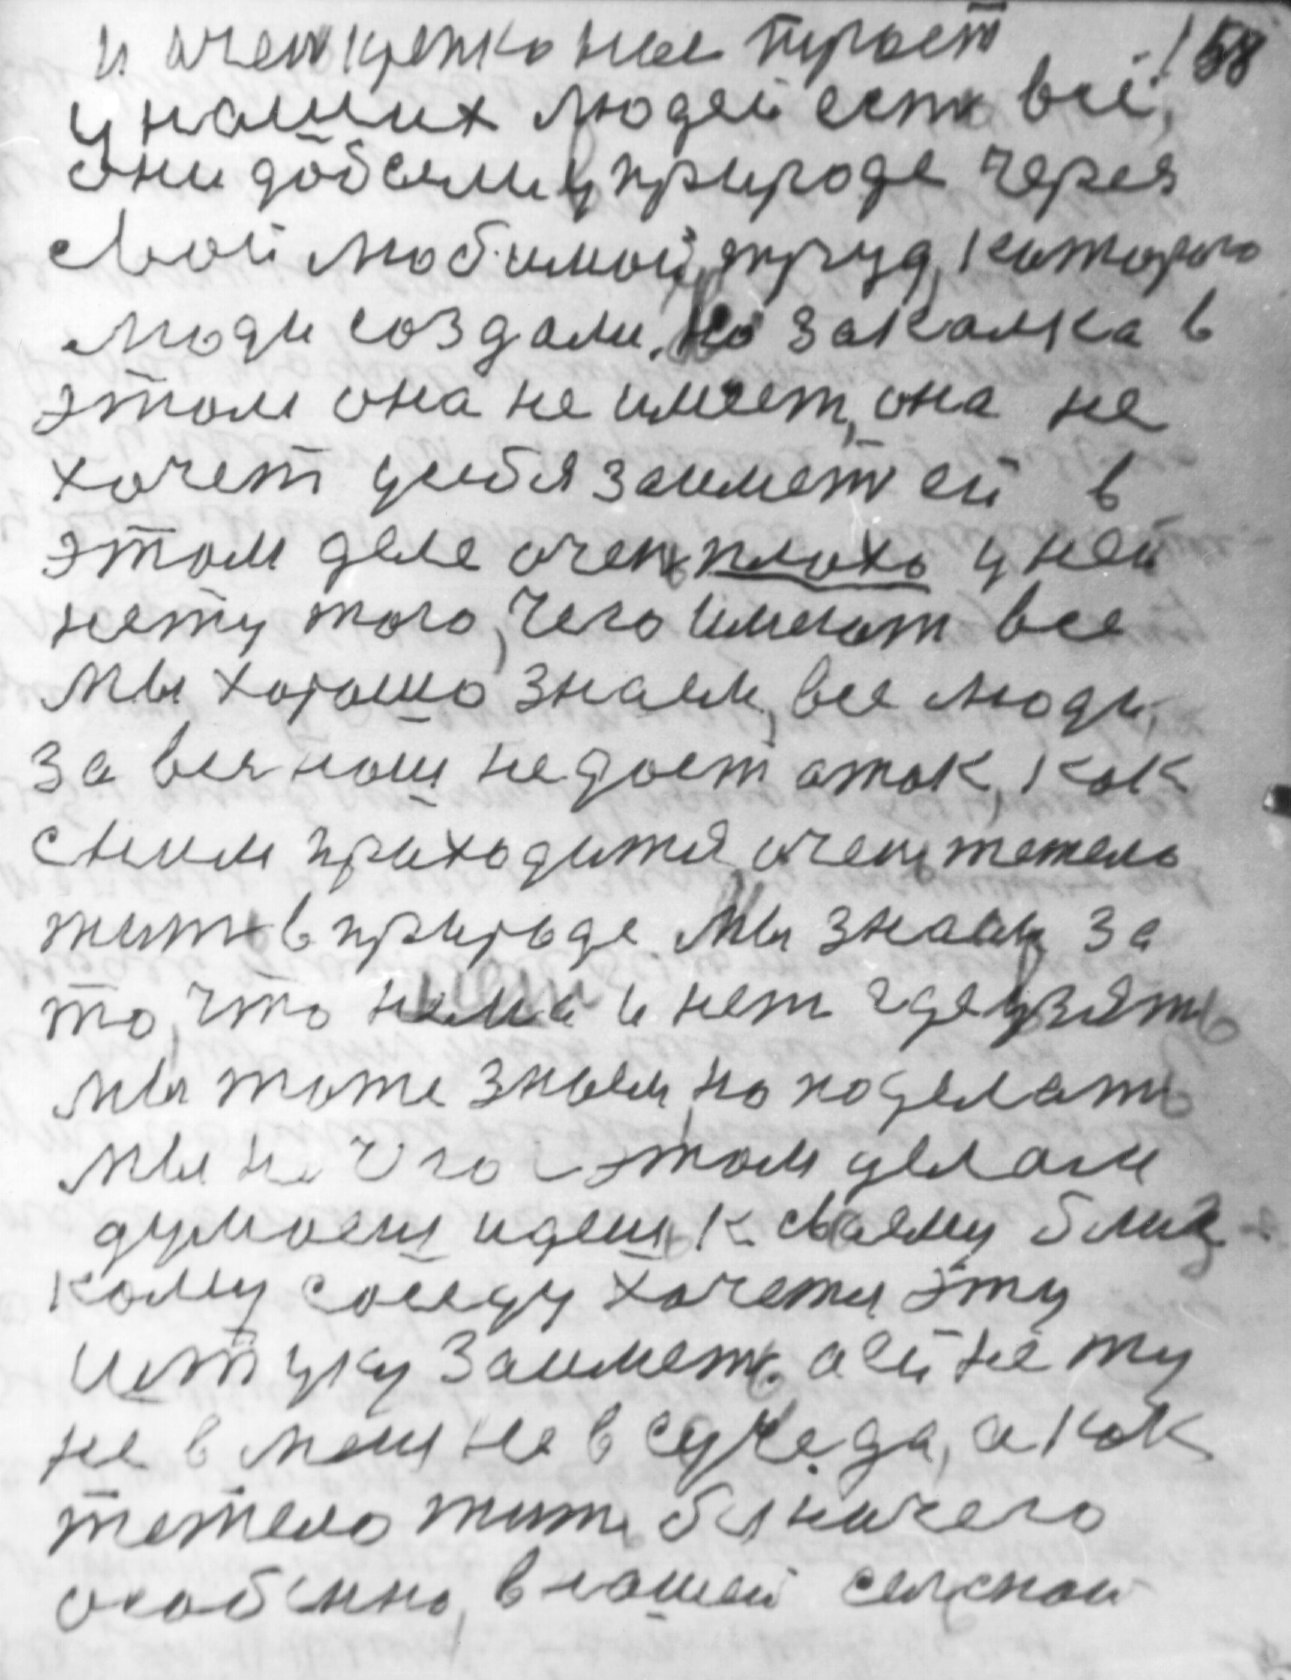 158
и очен крепко нас трост
у наших людей есть всё,
они добыли у природе через
свой любимой труд, которого
люди создали. Но закалка в
этом она не имеет, она не
хочет у себя заиметь ей в
этом деле очень плохо у ней
нету того, чего имеют все
мы хорошо знаем, все люди,
за всех наш недостаток, как
с ним приходится очень тежело
жить в природе. Мы знаем за
то, что нема и нет где взять
мы тоже знаем, но поделать
мы ничего с этом делам
думаеш идеш к своему близ-
кому соседу хочется эту
штуку заиметь. а ей нету
не в меня не в суседа, а как
тежело жить без ничего
особенно, в нашей селской